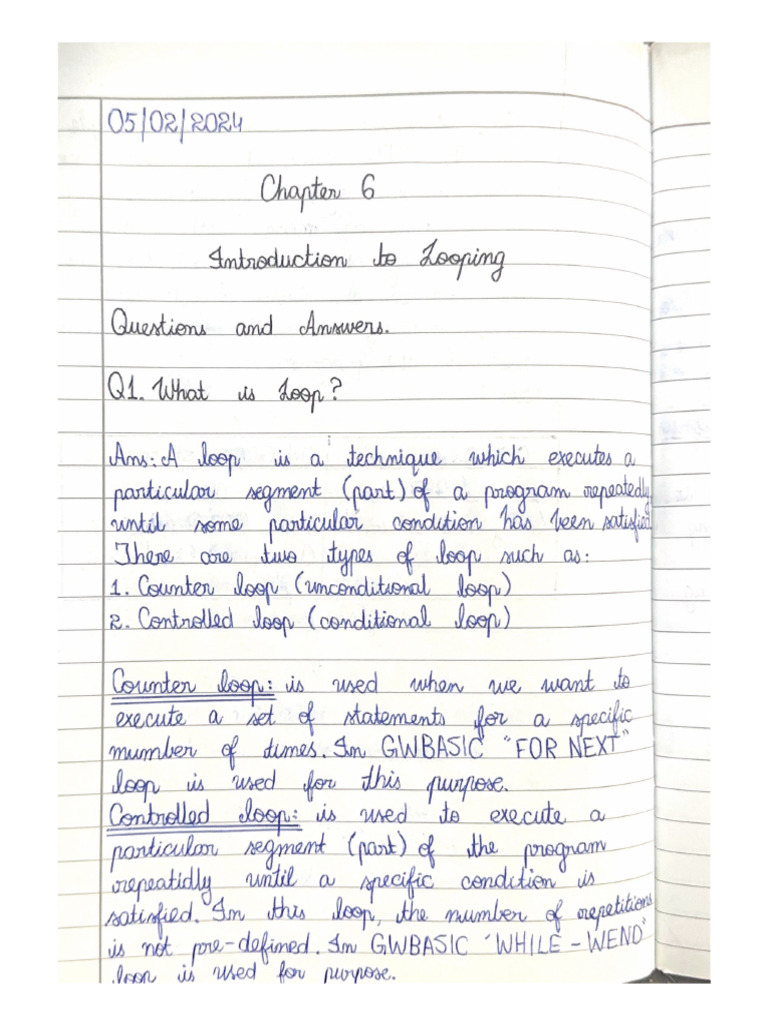 05/02/2024
Chapter 6
Introduction to Looping
Questions and Answers.
Q1. What is Loop?
Ans: A loop is a technique which executes a
particular segment (part) of a program repeatedly
until some particular condition has been satisfied.
There are two types of loop such as:
1. Counter loop (unconditional loop)
2. Controlled loop (conditional loop)
Counter loop: is used when we want to
execute a set of statements for a specific
number of times. In GWBASIC "FOR NEXT"
loop is used for this purpose.
Controlled loop: is used to execute a
particular segment (part) of the program
repeatidly until a specific condition is
satisfied. In this loop, the number of repetitions
is not pre-defined. In GWBASIC "WHILE - WEND"
loop is used for purpose.